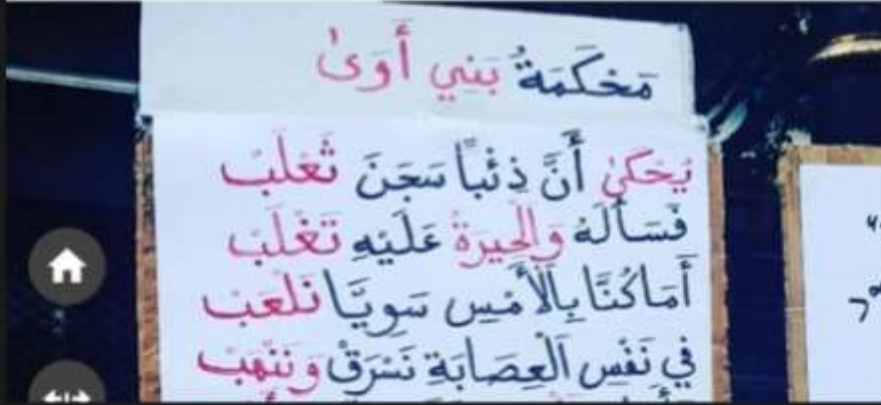 مَحْكَمَةُ بَنِي أَوَىٰ
يُحْكَىٰ أَنَّ ذِئْبًا سَجَنَ ثَعْلَبْ
فَسَأَلَهُ وَالْحِيرَةُ عَلَيْهِ تَغْلَبْ
أَمَا كُنَّا بِالْأَمْسِ سَوِيًّا نَلْعَبْ
فِي نَفْسِ الْعِصَابَةِ نَسْرَقْ وَنَنْهَبْ